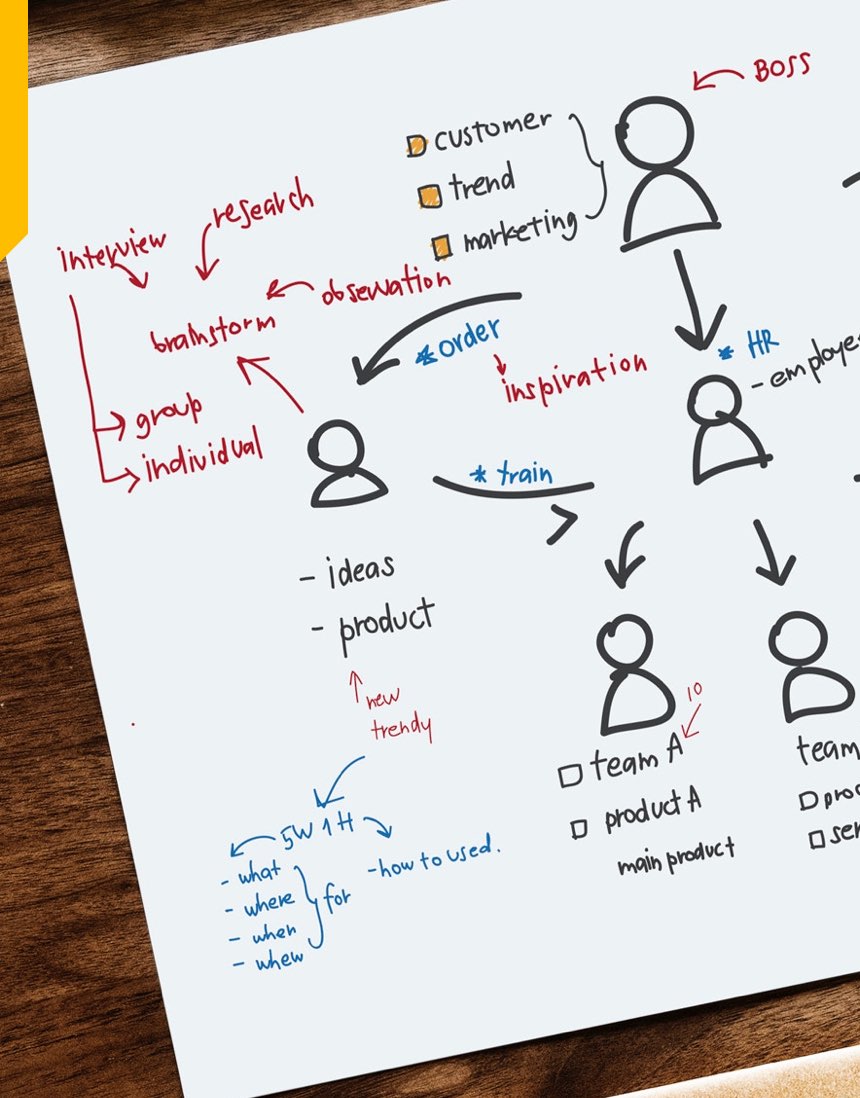 BOSS
customer
trend
marketing
research
interview
observation
brainstorm
*order
inspiration
* HR
group
individual
* train
- ideas
- product
new
trendy
10
team A
product A
main product
team
5W 1H
- what
- where
- when
- whew
for
-how to used.